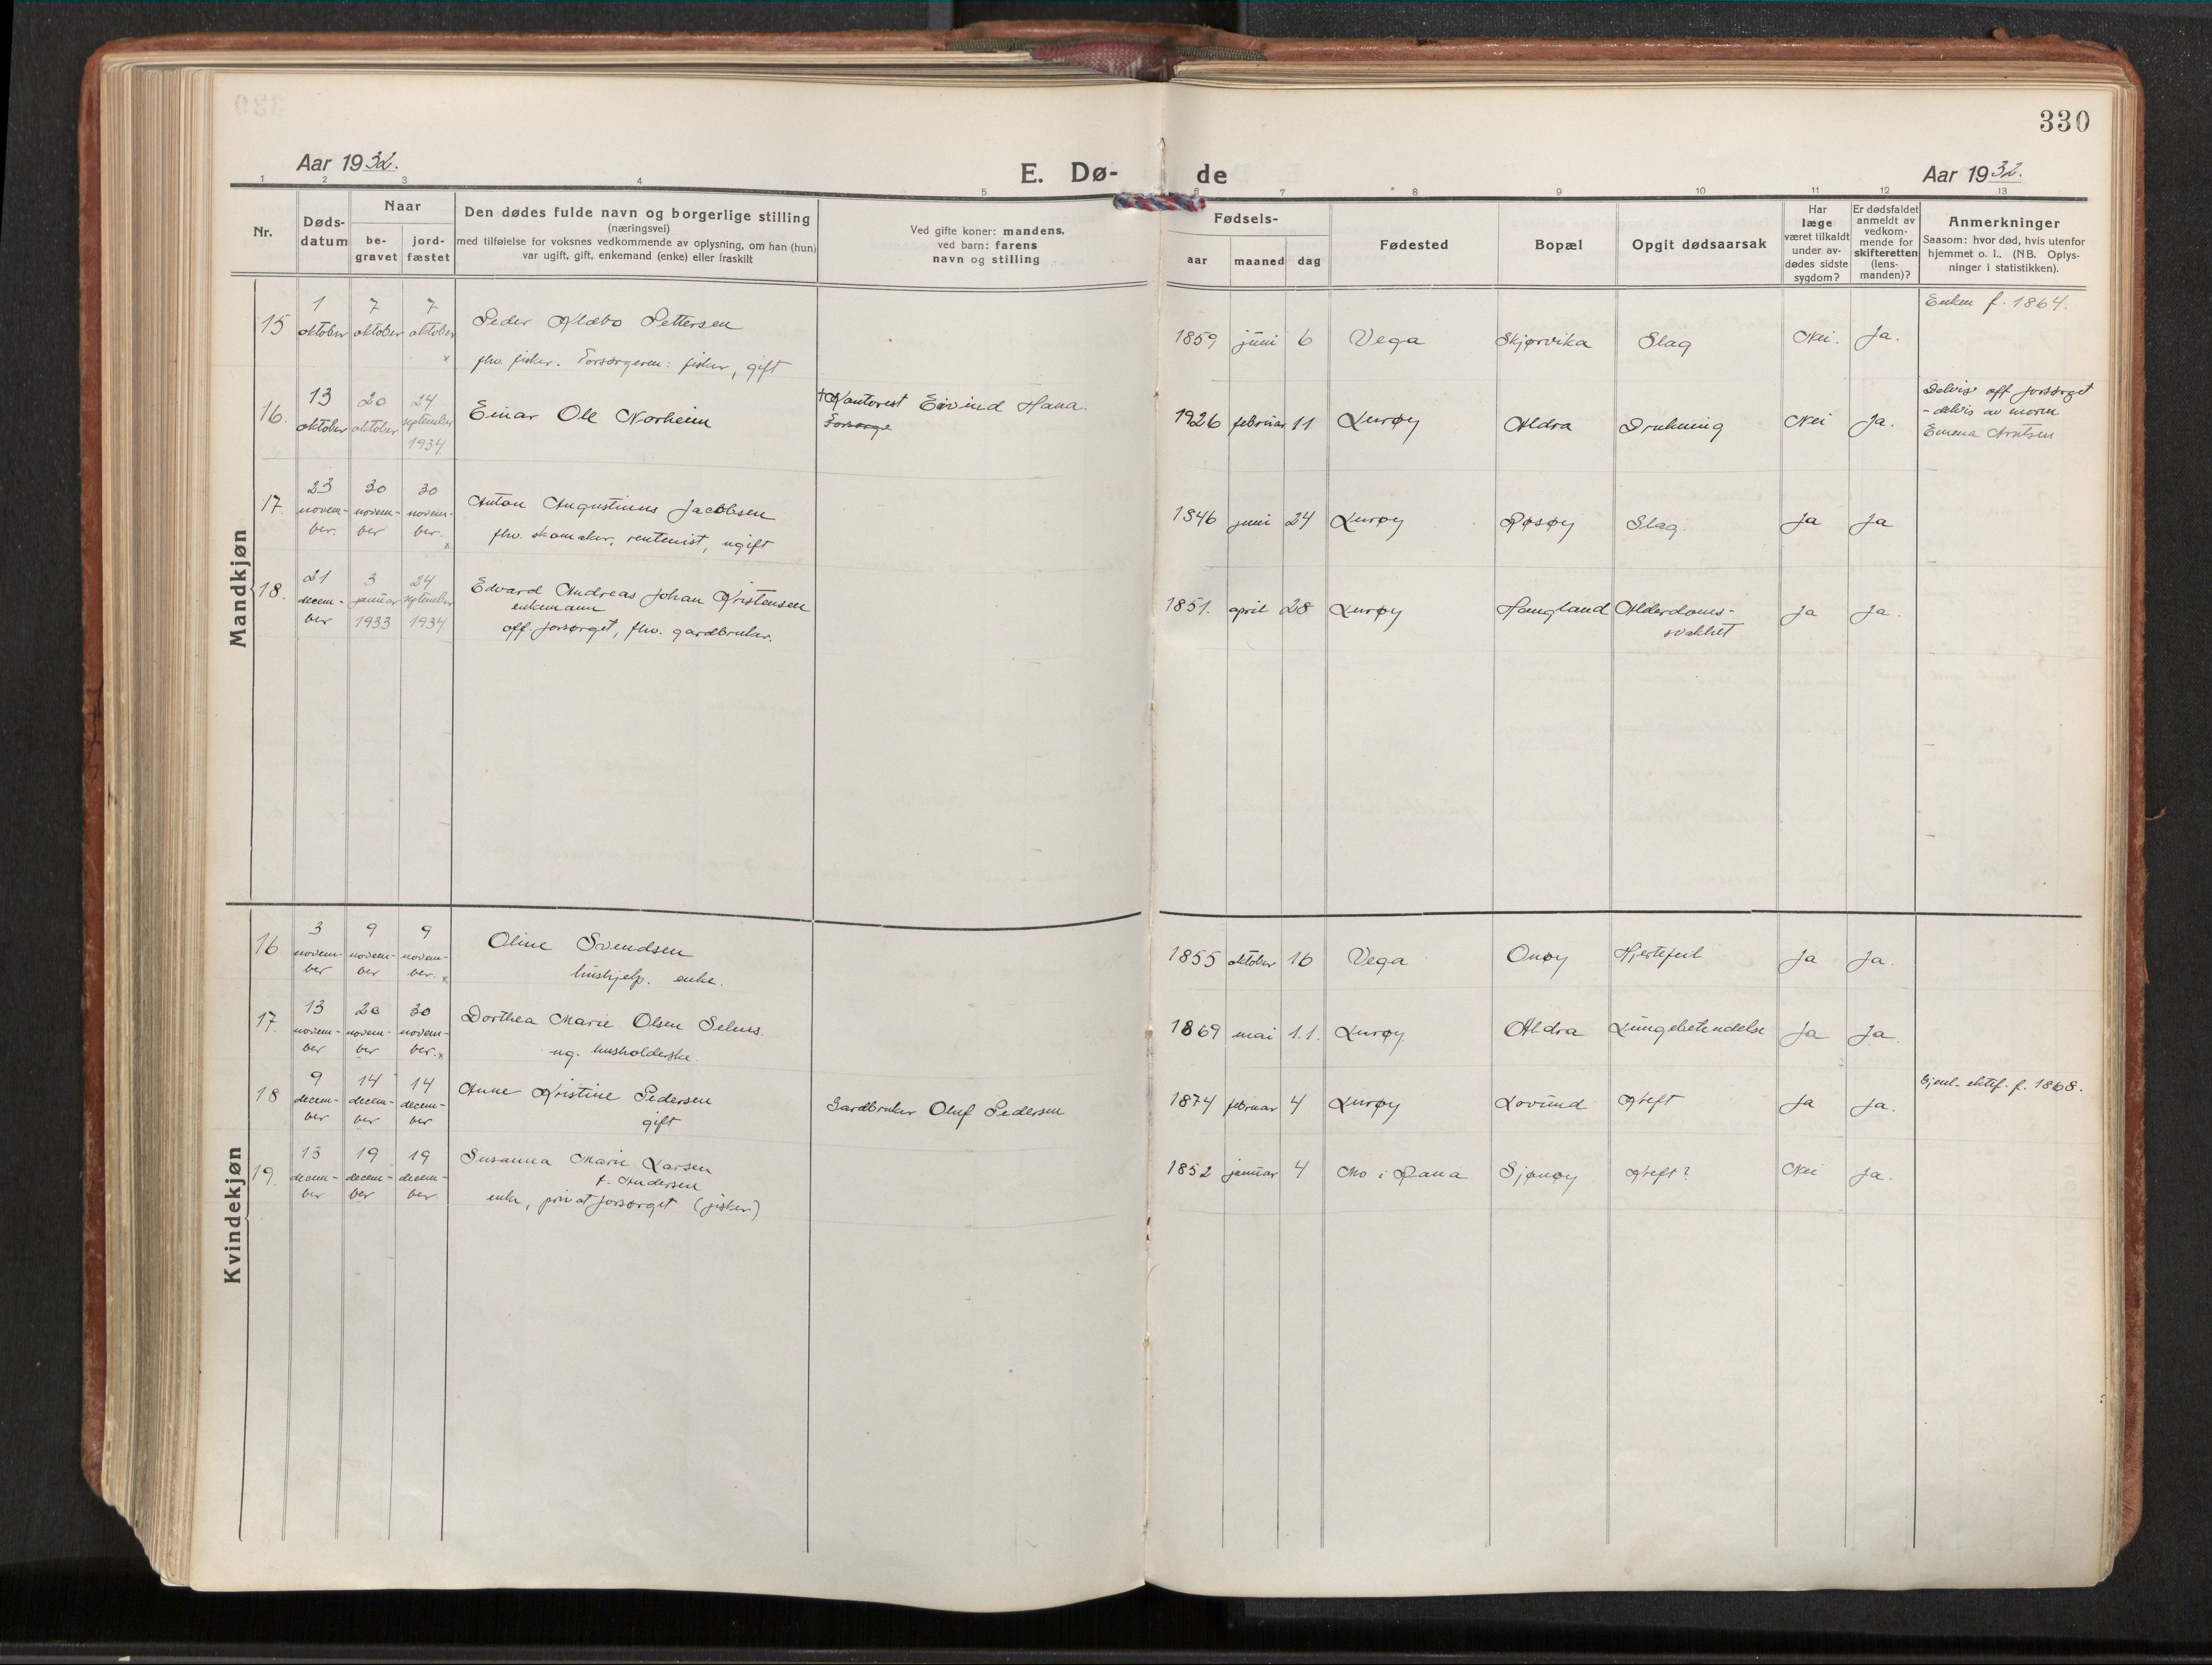 330
Aar 1932.
E. Dø- de
Aar 1932.
1 2 3 4 5 6 7 8 9 10 11 12 13
Nr.
Døds-
datum
Naar
be-
gravet
jord-
fæstet
Den dødes fulde navn og borgerlige stilling
(næringsvei)
med tilføielse for voksnes vedkommende av oplysning, om han (hun)
var ugift, gift, enkemand (enke) eller fraskilt
Ved gifte koner: mandens,
ved barn: farens
navn og stilling
Fødsels-
aar maaned dag
Fødested
Bopæl
Opgit dødsaarsak
Har
læge
været tilkaldt
under av-
dødes sidste
sygdom?
Er dødsfaldet
anmeldt av
vedkom-
mende for
skifteretten
(lens-
manden)?
Anmerkninger
Saasom: hvor død, hvis utenfor
hjemmet o. l., (NB. Oplys-
ninger i statistikken).
Mandkjøn
15
1
oktober
7
oktober
7
oktober
x
Peder Klæbo Pettersen
fhv. fisker. Forsørgeren: fisker, gift
1859 juni 6 Vega Skjørvika Slag Nei. Ja.
Enken f. 1864.
16.
13
oktober
20
oktober
24
september
1934
Einar Ole Norheim
Kontorist Eivind Hana.
Forsørge
1926 februar 11 Lurøy Aldra Drukning Nei Ja.
Delvis off forsørget
- delvis av moren
Emma Arntsen
17.
23
novem-
ber.
30
novem-
ber
30
novem-
ber.
x
Anton Augustinus Jacobsen
fhv. skomaker, rentenist, ugift
1846 juni 24 Lurøy Røsøy Slag Ja Ja
18.
21
decem-
ber
3
januar
1933
24
september
1934
Edvard Andreas Johan Kristensen
enkemann
off. forsørget, fhv. gardbruker.
1851. april 28 Lurøy Haugland Alderdoms-
svakhet
Ja Ja.
Kvindekjøn
16
3
novem-
ber
9
novem-
ber
9
novem-
ber. x
Oline Svendsen
hushjelp. enke.
1855 oktober 16 Vega Onøy Hjertefeil Ja Ja.
17.
13
novem-
ber
20
novem-
ber
30
novem-
ber. x
Dorthea Marie Olsen Selnes.
ug. husholderske.
1869 mai 11. Lurøy Aldra Lungebetendelse Ja Ja.
18
9
decem-
ber
14
decem-
ber
14
decem-
ber
Anne Kristine Pedersen
gift
Gardbruker Oluf Pedersen
1874 februar 4 Lurøy Lovund Kreft Ja Ja.
Gjenl. ektef. f. 1868.
19.
13
decem-
ber
19
decem-
ber
19
decem-
ber.
Susanna Marie Larsen
f. Andersen
enke, privat forsørget (fisker)
1852 januar 4 Mo i Rana Sjønøy Kreft? Nei Ja.